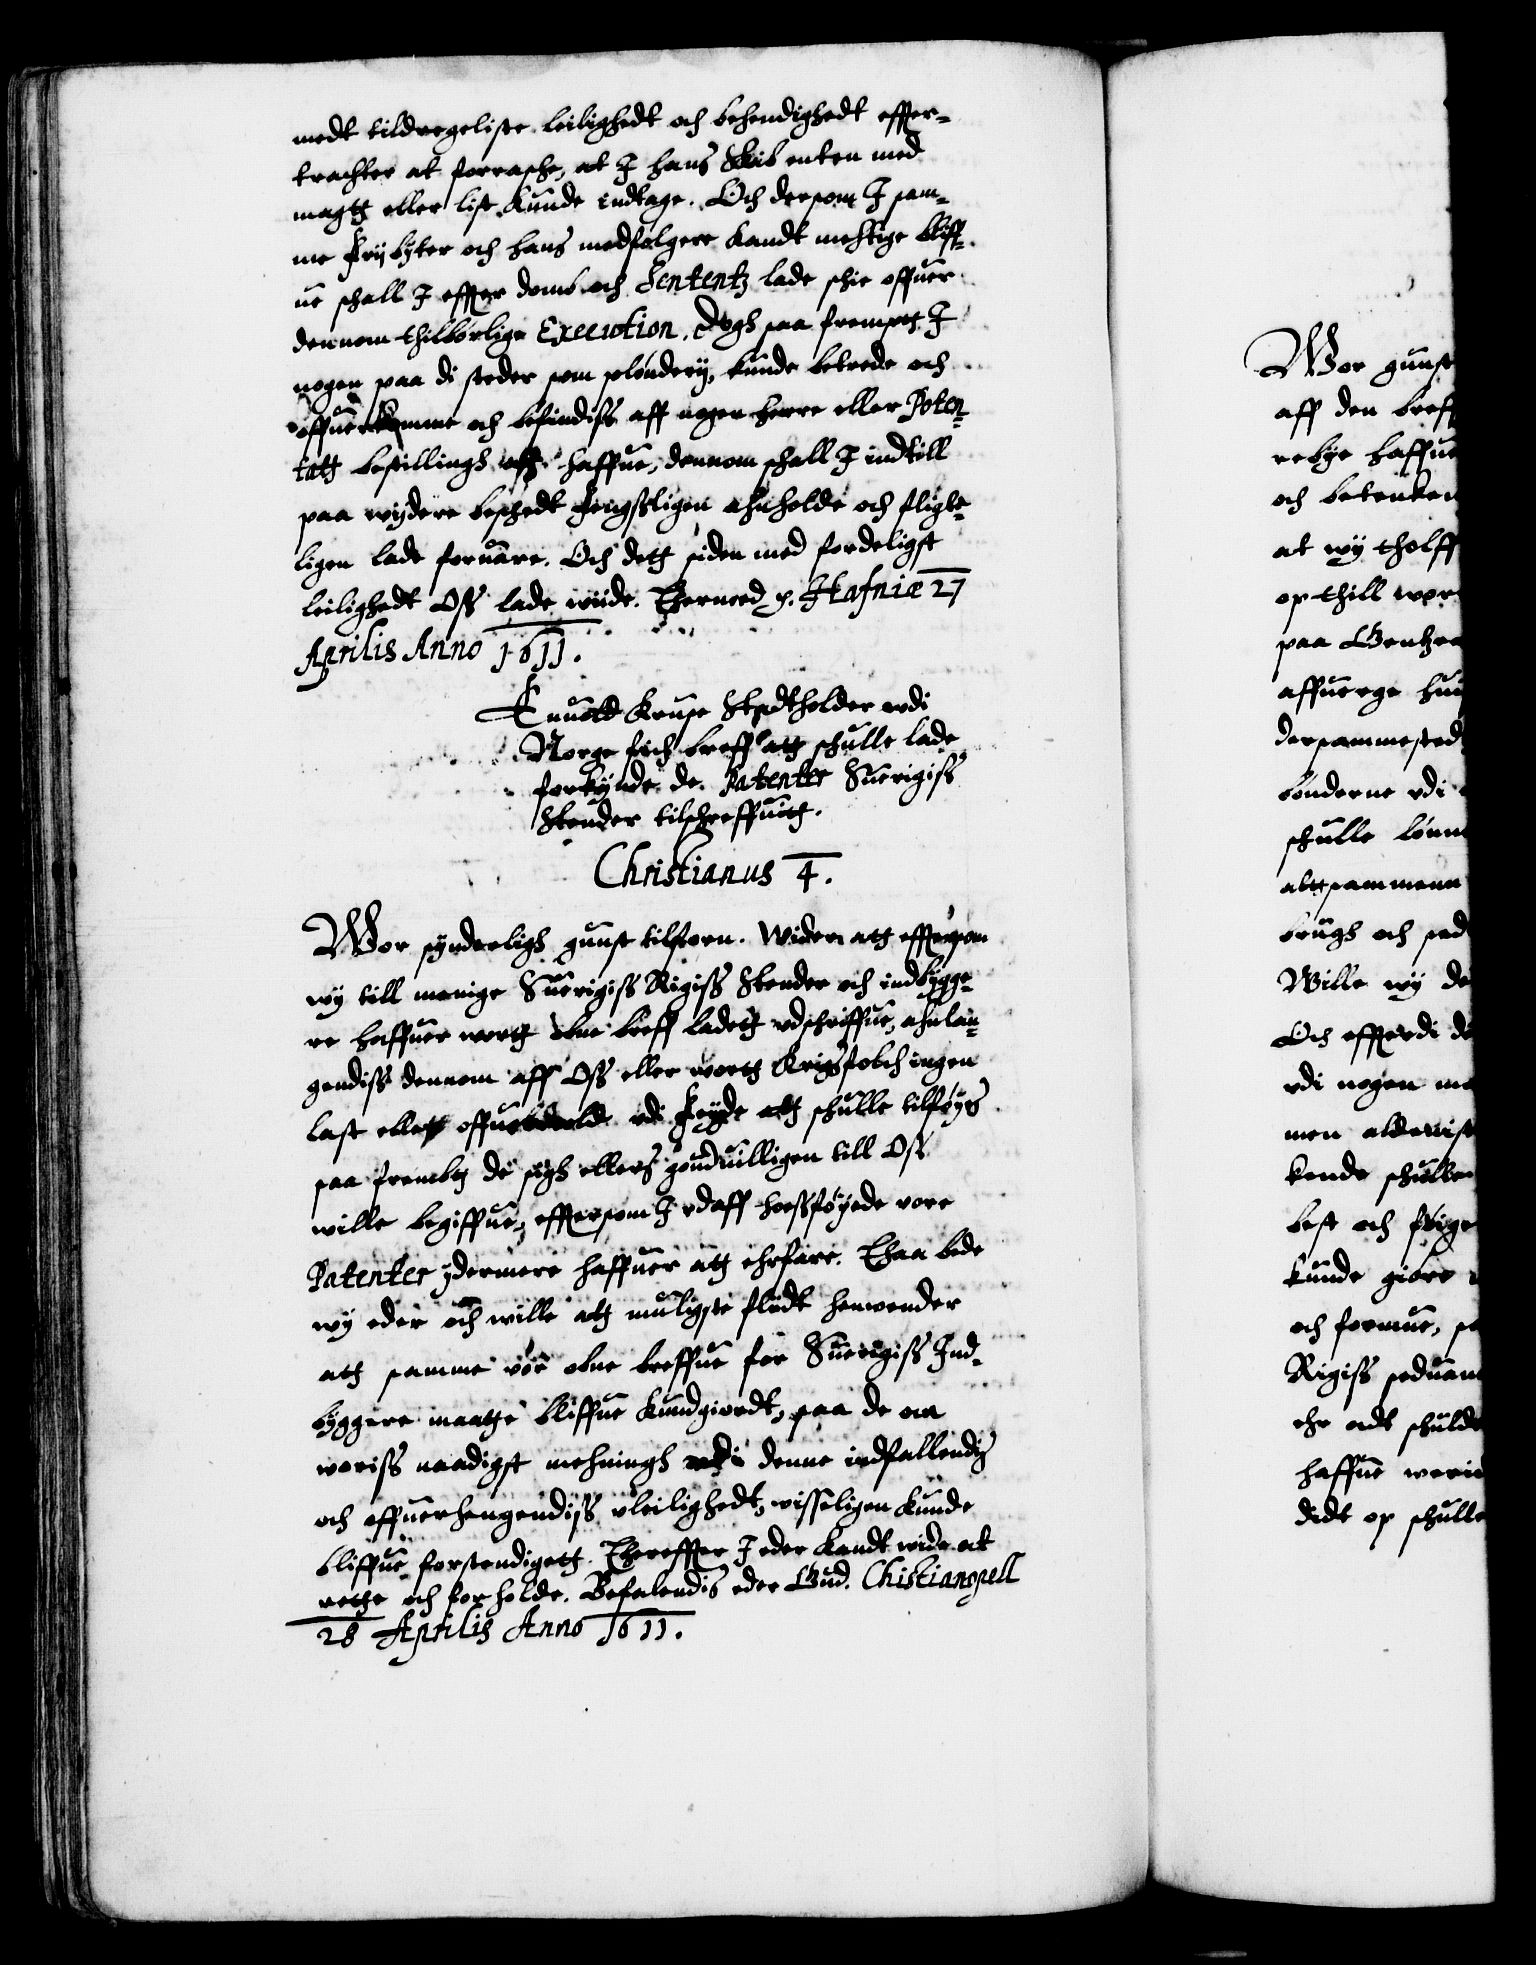 medt tildregeliste leilighedt och behendighedt effter-
trachter at forrasche, at I hans Skib enten med
magtt eller list kunde indtage. Och dersom I sam-
me frybyter och hans medfølgere kandt mechtige bliff-
ue schall I effter domb och Sententz lade schie offuer
dennom thilbørlige Execution. Dogh saa frempt I
nogen paa di steder som plóndery, kunde betrede och
offuerkomme och befindiss aff nogen herre eller Poten-
tatt bestillingh haffue, dennom schall I indtill
paa wydere beschedt fengssligen ahnholde och fligte-
ligen lade foruare. Och dett siden med fordeligst
leilighedt Oss lade wiide. Thermed p. Hafniæ 27
Aprilis Anno 1611.
Enuold Kruse Stadtholder wdi
Norge fich breff att schulle lade
forkynde de Patenter Suerigiss
Stender tilschreffuitt.
Christianus 4.
Wor synderligh gunst tilforn. Wider att efftersom
wy till menige Suerigiss Rigiss Stender och indbygge-
re haffuer wortt obne breff ladett vdschriffue, ahnlan-
gendiss dennom aff Oss eller wortt Krigsfolch ingen
last eller offueruold vdi feyde att schulle tilføyes
saa frembt de sigh ellers goudtuilligen till Oss
wille begiffue, efftersom I vdaff hossføyede vore
Patenter ydermere haffuer att ehrfare. Thaa bede
wy eder och wille att muligste flidt henwender
att samme vor obne breffue for Suerigiss Ind-
byggere maatte bliffue kundgiordt, paa de aa
woriss naadigst mehningh vdi denne indfallendis
och offuerhengendiss vleilighedt, wisseligen kunde
bliffue forstendigett. Thereffter I eder kandt wide at
rette och forholde. Befalendis eder Gud. Chistianopell
28 Aprilis Anno 1611.
Wor gunst
aff den breff
rebye haffue
och betenken
at wy tholff
op thill wor
paa
affuerge
dersammested
bønderne vdi
schulle lønn
altsammenn
brugh och sad
Wille wy de
Och effterdi de
vdi nogen ma
men aldenist
kende schulle
best och
kunde giøre
och formue, sa
Rigiss
ehr adt schulde
haffue werid
didt op schulle